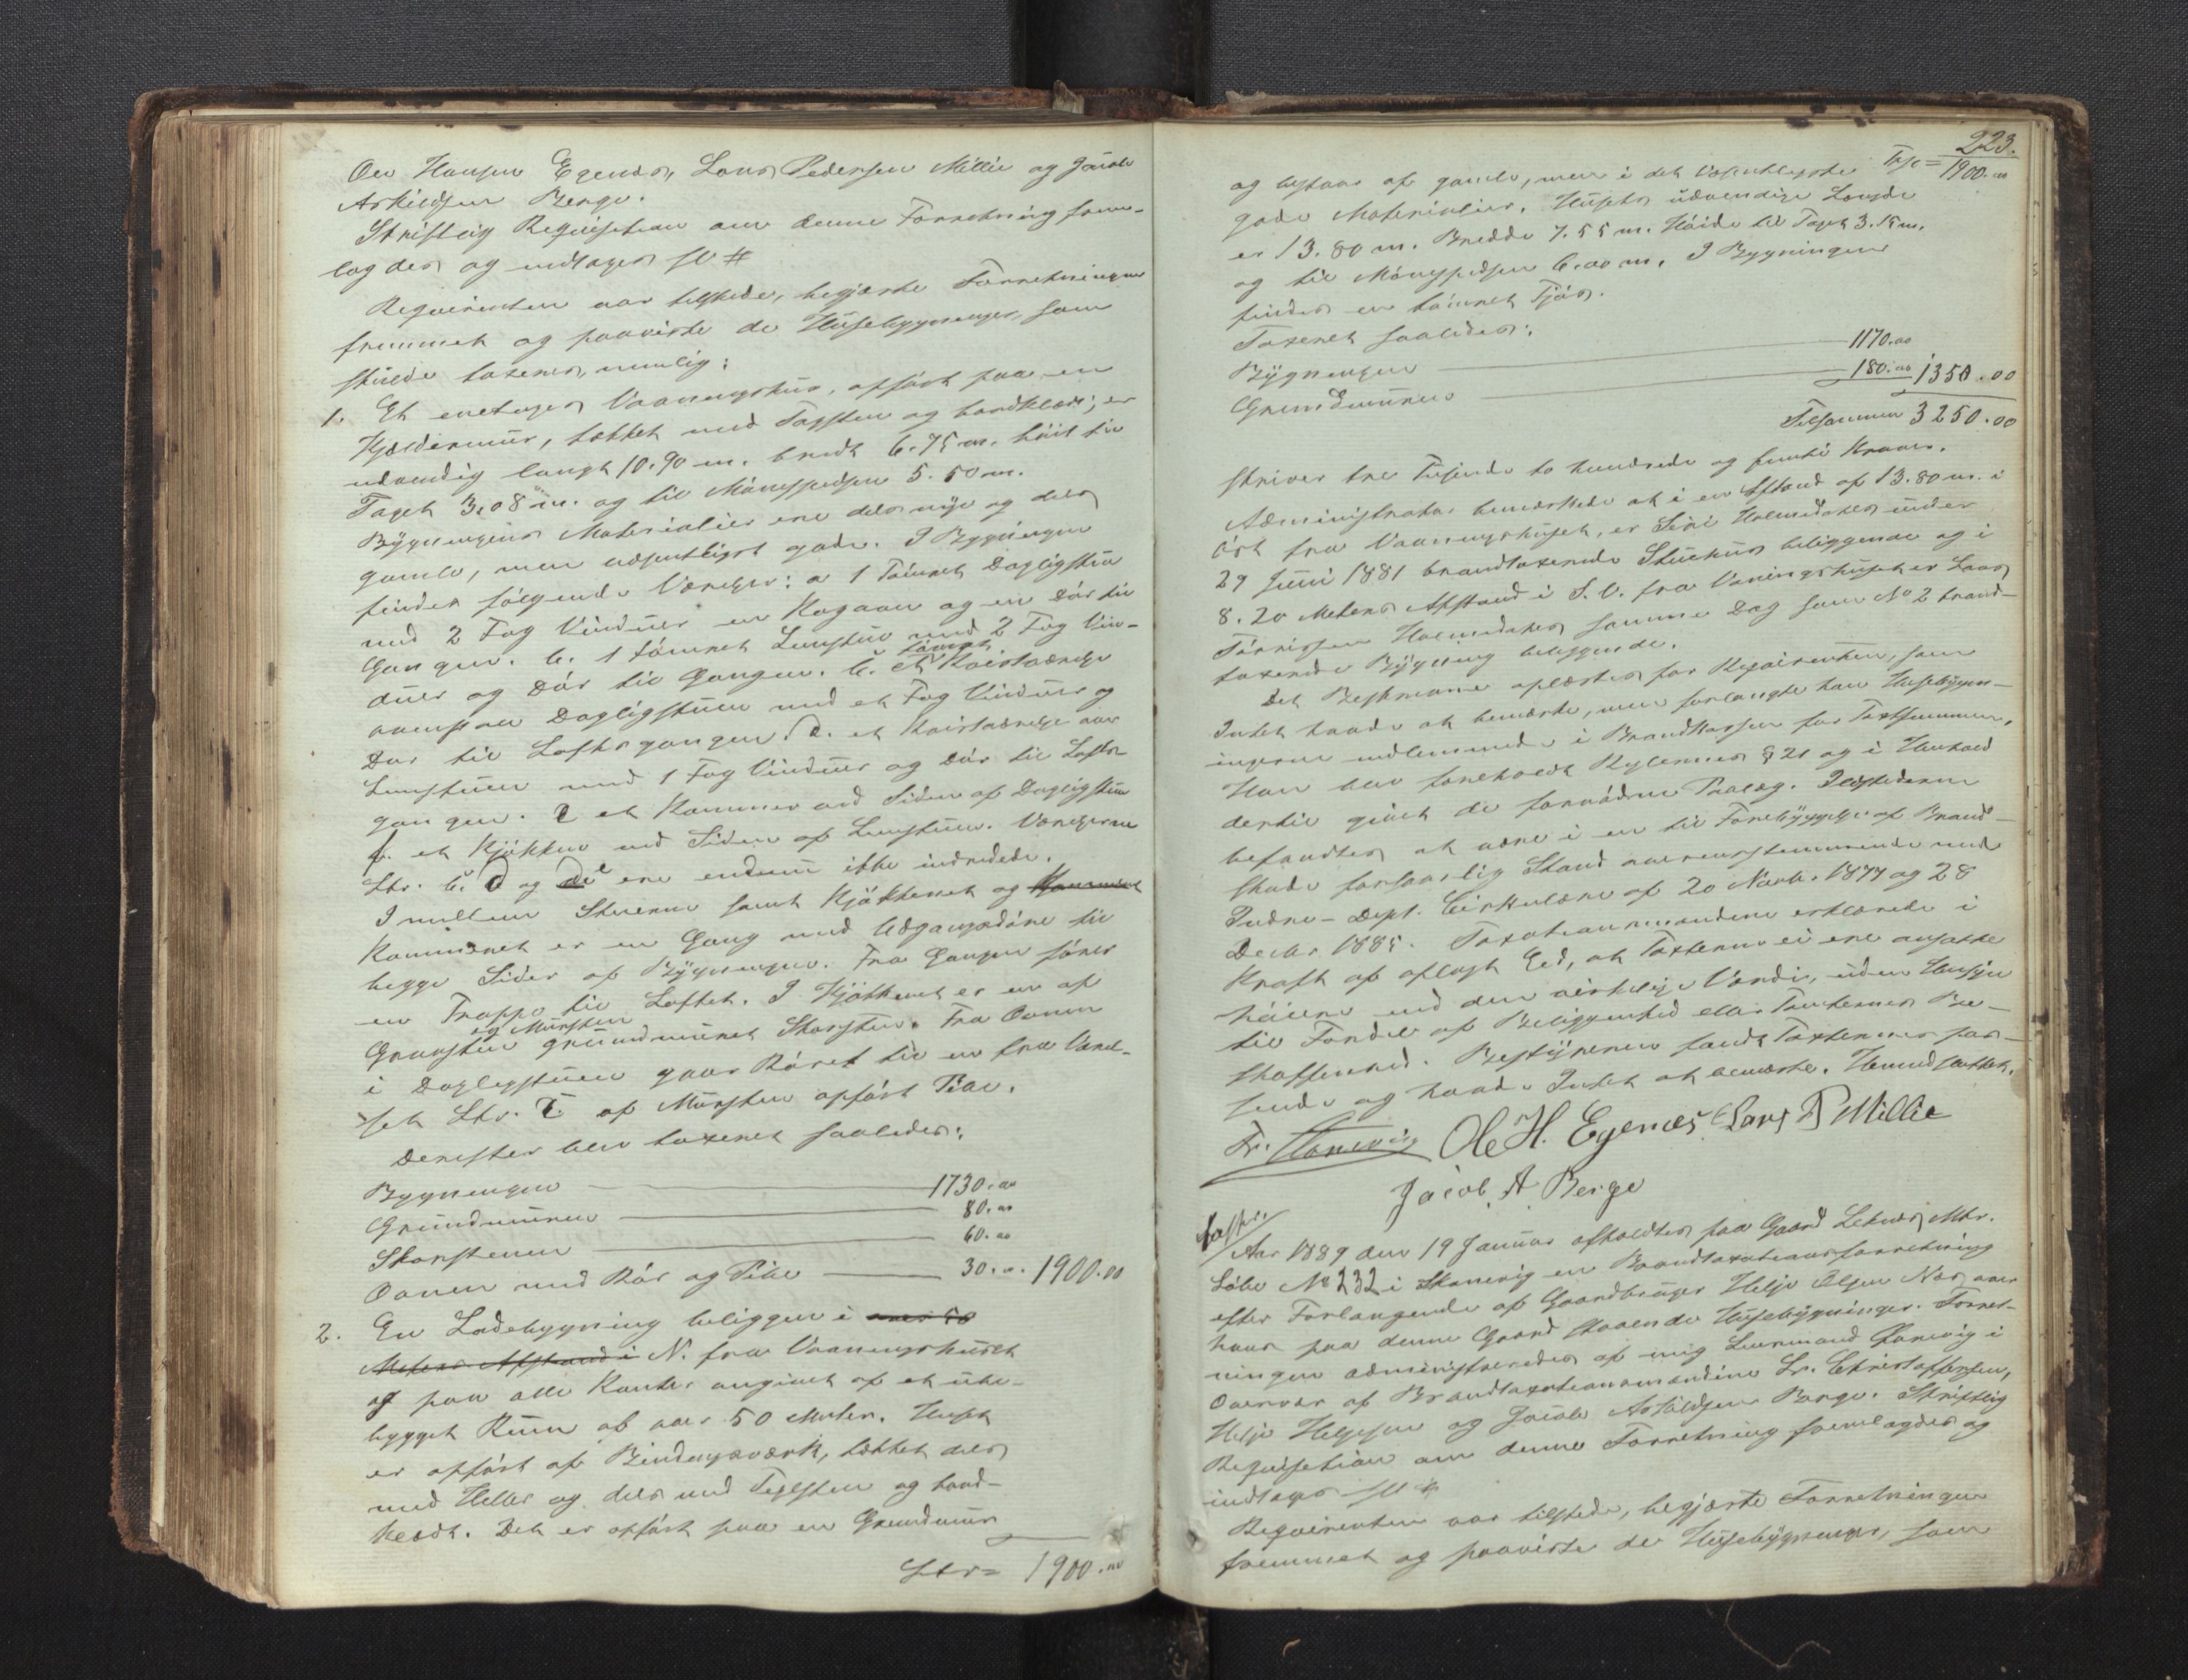 Ole Hansen Egenæs, Lars Pedersen Millie og Jacob
Askildsen Berge.
Skriftlig Reqvisition om denne Forretning frem-
lagdes og indtages sl. #
Reqvirenten var tilstede, begjærte Forretningen
fremmet og paaviste de Huusebygninger, som
skulde taxeres, nemlig:
1. Et enetages Vaaningshus, opført paa en
Kjeldermuur, tækket med Tagsten og bordklædt; er
udvendig langt 10.90 m. bredt 6.75 m. høit til
Taget 3.08 m. og til Mønespidsen 5.50 m.
Bygningens Materialier ere dels nye og dels
gamle, men væsentligst gode. I Bygningen
findes følgende Værelser: a 1 Tømret Dagligstue
med 2 Fag Vinduer en Kogeovn og en Dør til
Gangen. b. 1 tømret Lemstue med 2 Fag Vin-
duer og Dør til Gangen. c. et tømret Kvistværelse
ovenpaa Dagligstuen med et Fag Vinduer og
Dør til Loftsgangen. d. et Kvistværelse over
Lemstuen med 1 Fag Vinduer og Dør til Lofts-
gangen. e et Kammer ved Siden af Dagligstuen
f. et Kjøkken ved Siden af Lemstuen. Værelserne
Ltr. c. d og e ere endnu ikke indredede.
Imellem Stuerne samt Kjøkkenet og Kammeret
Kammeret er en Gang med Udgangsdøre til
begge Sider af Bygningen. Fra Gangen fører
en Trappe til Loftet. I Kjøkkenet er en af
Graasten og Mursten grundmuret Skorsten. Fra Ovnen
i Dagligstuen gaar Røret til en fra Værel-
set Ltr. C af Mursten opført Pibe.
Derefter blev taxeret saaledes:
Bygningen 1730.00
Grundmuren 80.00
Skorstenen 60.00
Ovnen med Rør og Pibe 30.00. 1900.00
2. En Ladebygning beliggen i over 50
Meters Afstand i N. fra Vaaningshuset
og paa alle Kanter omgivet af et ube-
bygget Rum af over 50 Meter. Huset
er opført af Bindingsværk, tækket dels
med Heller og dels med Teglsten og bord-
klædt. Det er opført paa en Grundmuur
Ltr = 1900.00
223.
Trsp = 1900.00
og bestaar af gamle, men i det væsentligste
gode Materialier. Husets udvendige Længde
er 13.80 m. Bredde 7.55 m. Høide til Taget 3.15 m.
og til Mønespidsen 6.00 m. I Bygningen
findes en tømret Fjøs.
Taxeret saaledes:
Bygningen 1170.00
Grundmuren 180.00 1350.00
Tilsammen 3250.00
skriver tre Tusinde to hundrede og femti Kroner.
Administrator bemærkede at i en Afstand af 13.80 m. i
Øst fra Vaaningshuset, er Siri Holmedals under
29 Juni 1881 brandtaxerede Stuehus beliggende og i
8.20 Meters Afstand i S.V. fra Vaningshuset er Lars
Tørrissen Holmedals samme Dag som No 2 brand-
taxerede Bygning beliggende.
Det Beskrevne oplæstes for Reqvirenten, som
Intet havde at bemærke, men forlangte han Husebygn-
ingerne indlemmede i Brandkassen for Taxtsummen.
Han blev foreholdt Reglernes § 21 og i Henhold
dertil givet de fornødne Paalæg. Ildstederne
befandtes at være i en til Forebyggelse af Brand-
skade forsvarlig Stand overensstemmende med
Indre-Dept. Cirkulære af 20 Novb. 1877 og 28
Decbr 1885. Taxationsmændene erklærede i
Kraft af aflagt Eed, at Taxterne ei ere ansatte
høiere end den virkelige Værdi, uden Hensyn
til Fordele af Beliggenhed eller Tomternes Be-
skaffenhed. Bestyreren fandt Taxterne pas-
sende og havde Intet at bemærke. Hermed sluttet.
Fr. Hanevig Ole H. Egenæs Lars P Millie
Jacob A Berge
Aar 1889 den 19 Januar afholdtes paa Gaard Leknes Mtr.
Løbe No 232 i Skanevig en Brandtaxationsforretning
efter Forlangende af Gaardbruger Helje Olsen Næs over
hans paa denne Gaard staaende Husebygninger. Forret-
ningen administreredes af mig Lensmand Hanevig i
Overvær af Brandtaxationsmændene Lr. Christoffersen,
Helje Heljesen og Jacob Askildsen Berge. Skriftlig
Reqvisition om denne Forretning fremlagdes og
indtages sl #
Reqvirenten var tilstede, begjærte Forretningen
fremmet og paaviste de Husebygninger, som